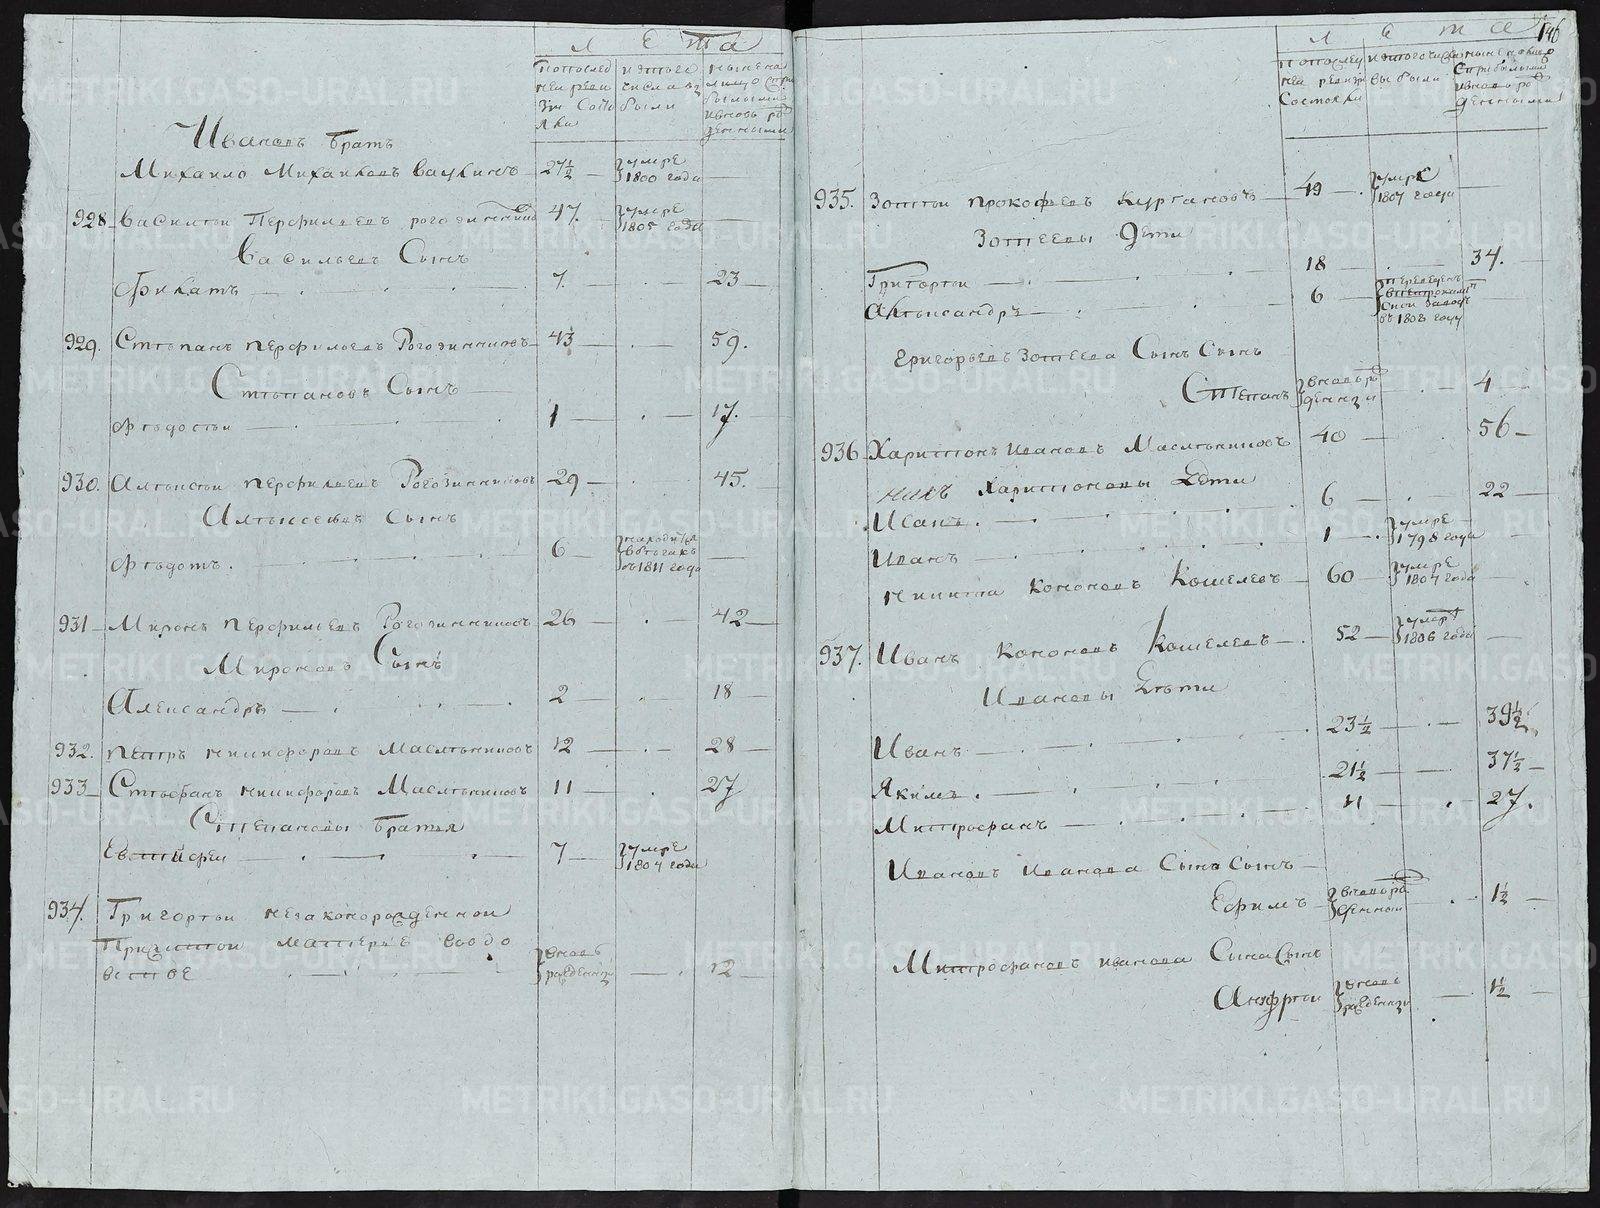 Л е та
По послед
ней реви
зіи Сост
яли
и этого
числа вы
были
ныне на
лицо с при
былыми
и вновь ро
денными
Ивановъ братъ
Михаило Михаиловъ Ваулинъ 27½ умре 1800 года
928 Василеи Перфильевъ рогозинников 47. умре 1805 года
Васильевъ Сынъ
Фикатъ 7. 23
929. Степанъ перфильевъ Рогозинниковъ 43 59.
Степановъ Сынъ
Федосеи 1 17.
930. Алексеи перфильевъ Рогозинниковъ 29 45.
Алексеевъ Сынъ
Федотъ. 6 находится в бегахъ съ 1811 года
931 Миронъ перфильевъ Рогозинниковъ 26 42
Мироновъ Сынъ
Александръ 2 18
932. петръ никифоровъ Масленниковъ 12 28
933 Стефанъ никифоровъ Масленниковъ 11 27
Степановы братья
Евтифеи 7 умре 1807 года
934. Григореи незаконорожденнои
Причитои матерью вдо
вство вновь рожденнои 12
146
Л е т а
По послед
ней ревизіи
Состояли
из того числа
выбыли
ныне на лицо
с прибылыми
и вновь ро
денными
935. Зотеи прокофьевъ Кургановъ 49 умре 1807 года
Зотеевы дети
Григореи 18 34.
Александръ 6 переведенъ в 1808 году
Григорьевъ Зотеева Сынъ Сынъ
Степанъ вновь рожденнои 4
936 Харитонъ Ивановъ Масленниковъ 40 56
Харитоновы Дети
Иванъ. 6 22
Иванъ 1 умре 1798 года
никита кононовъ Кошелевъ 60 умре 1807 года
937. Иванъ кононовъ Кошелевъ 52 умре 1806 года
Ивановы Дети
Иванъ 23½ 39½
Якимъ. 21½ 37½
Митрофанъ 11 27.
Ивановъ Иванова Сынъ Сынъ
Ефимъ вновь рожденнои 1½
Митрофановъ иванова Сына Сынъ
Андреи вновь рожденнои 1½
METRIKI.GASO-URAL.RU